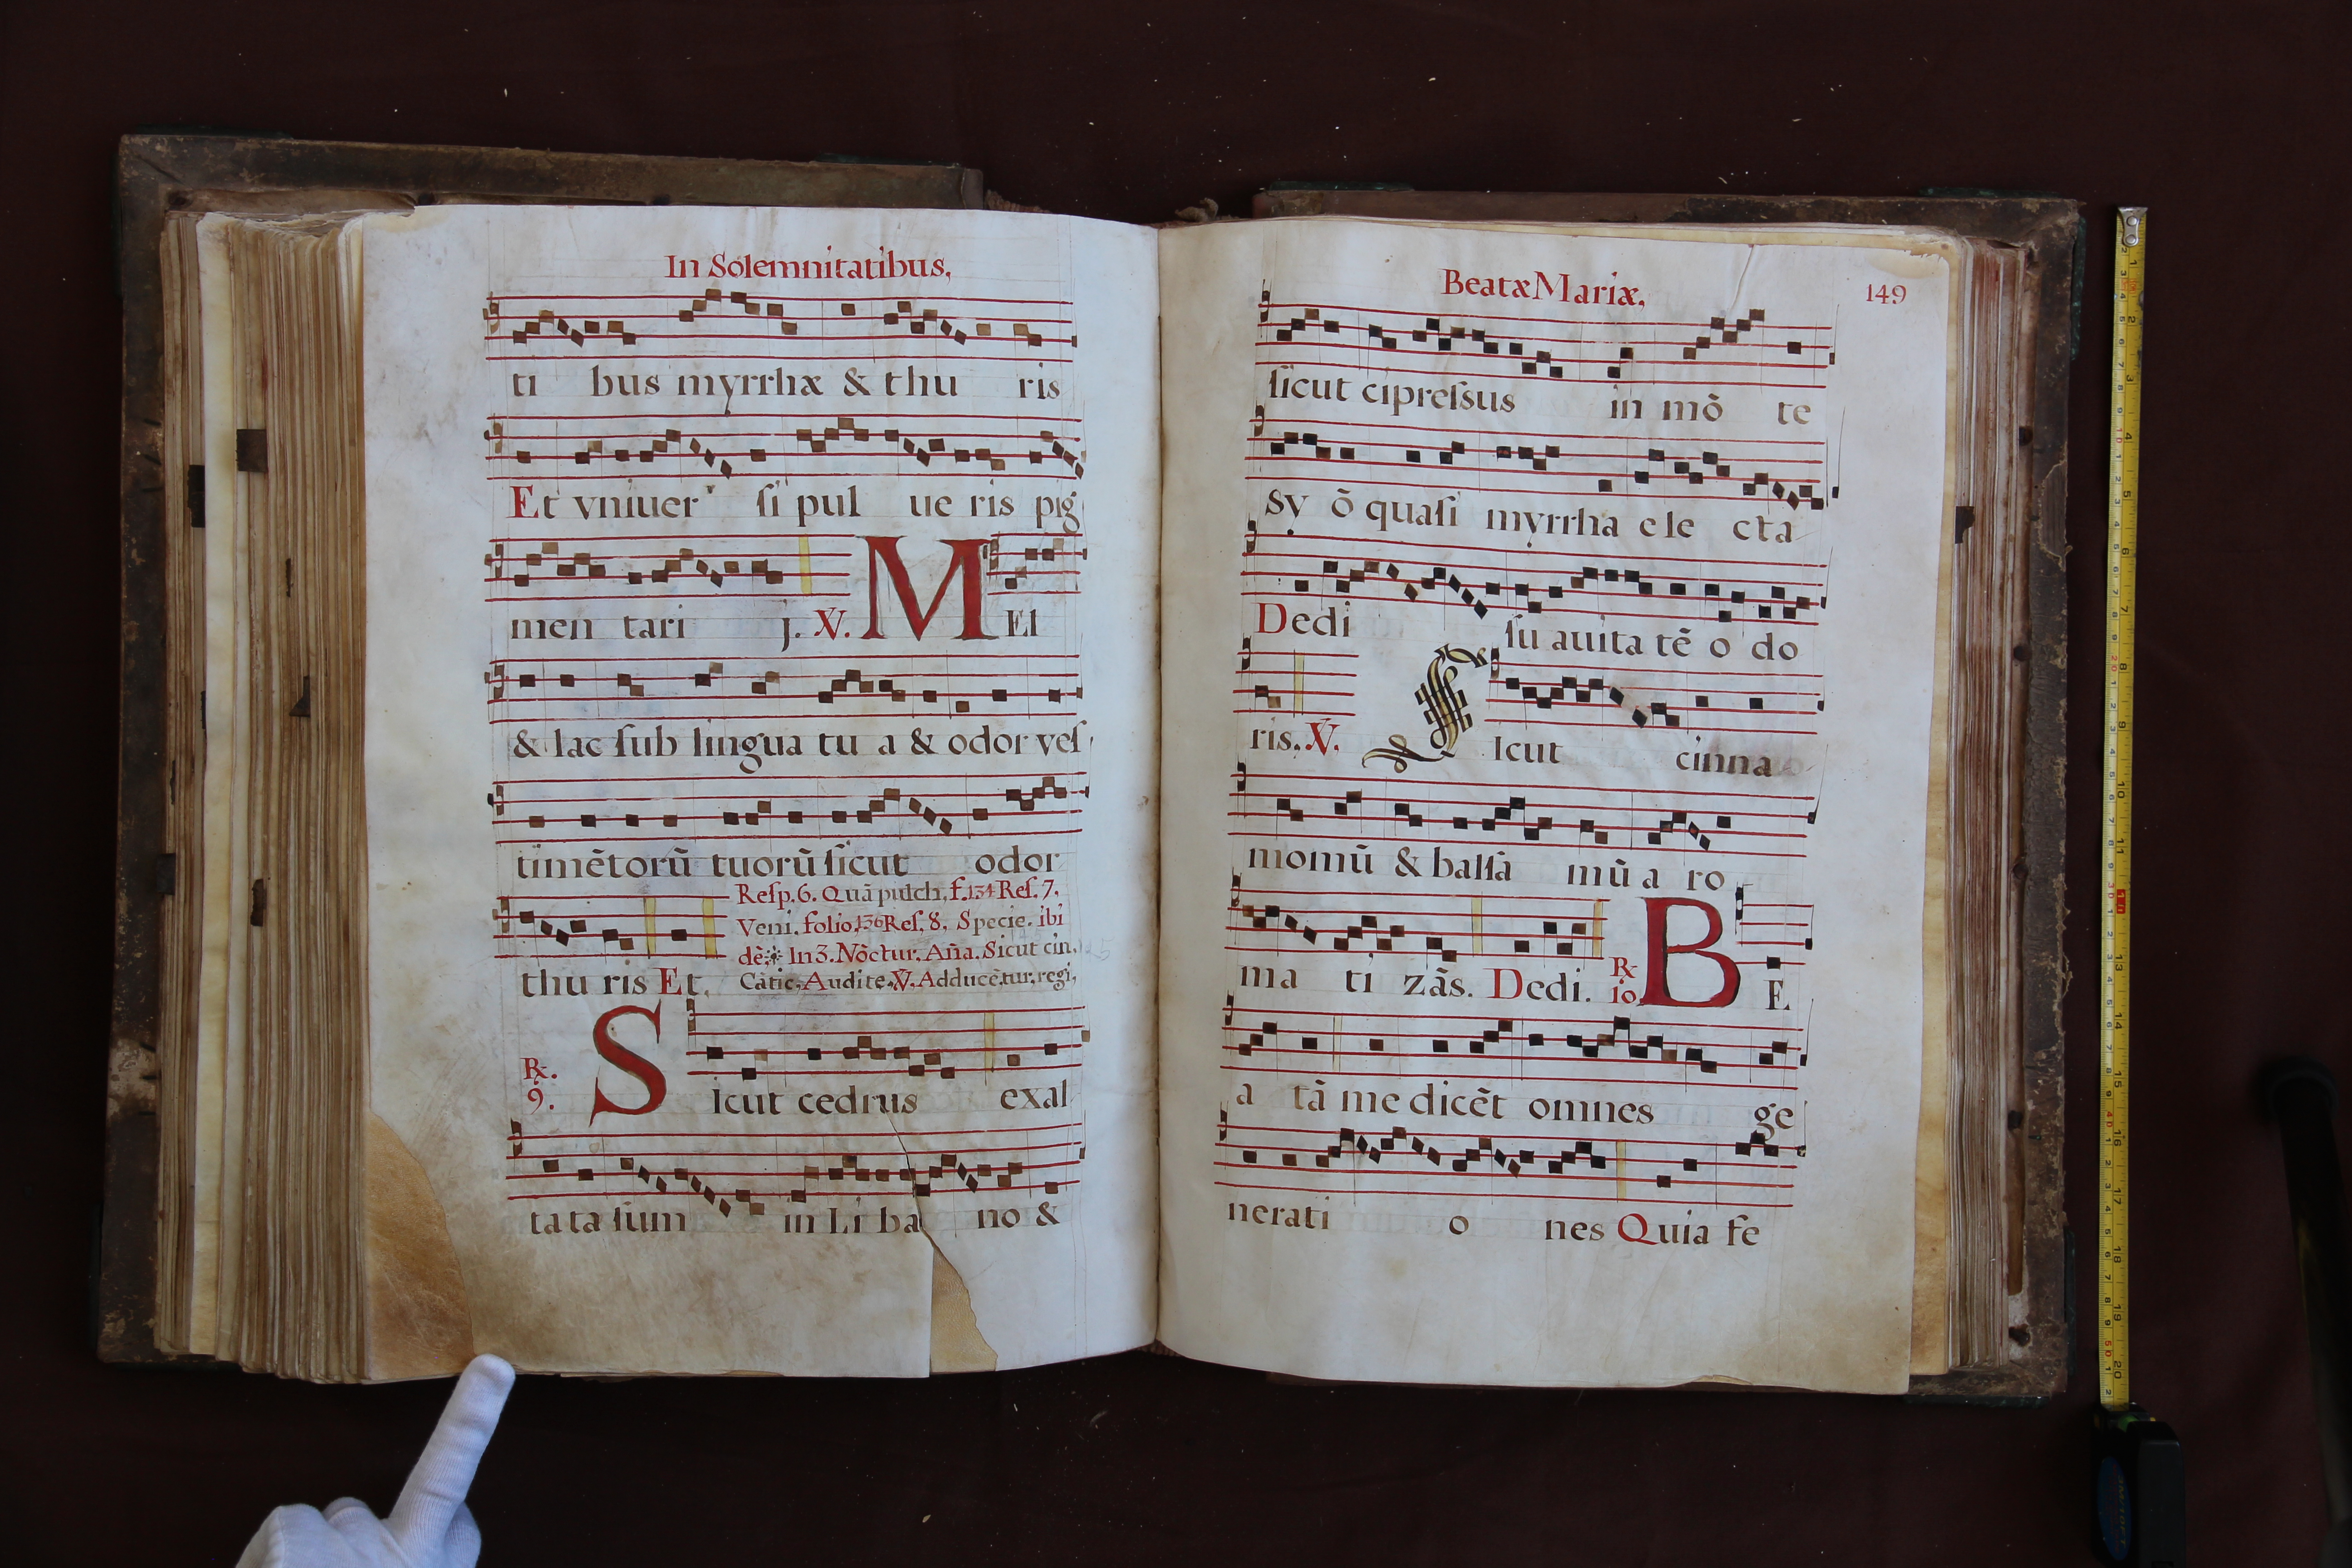 In Solemnitatibus,
ti bus myrrhæ & thu ris
Et vniuer ſi pul ue ris pig
men tari j. ℣. MEl
& lac ſub lingua tu a & odor veſ
timẽtorũ tuorũ ſicut odor
Reſp. 6. Quã pulch, f. 134 Reſ. 7.
Veni. folio, 136 Reſ. 8. Specie. ibi
dẽ. In 3. Nòctur. Aña. Sicut cin.
thu ris Et. Càtic. Audite. ℣. Adducẽtur. regi,
℟. 9. Sicut cedrus exal
ta ta ſum in Li ba no &
Beatæ Mariæ, 149
ſicut cipreſsus in mõ te
sy õ quaſi myrrha e le cta
Dedi ſu auita tẽ o do
ris. ℣. Sicut cinna
momũ & balſà mũ a ro
ma ti zãs. Dedi. ℟ 10. BE
a tã me dicẽt omnes ge
nerati o nes Quia fe